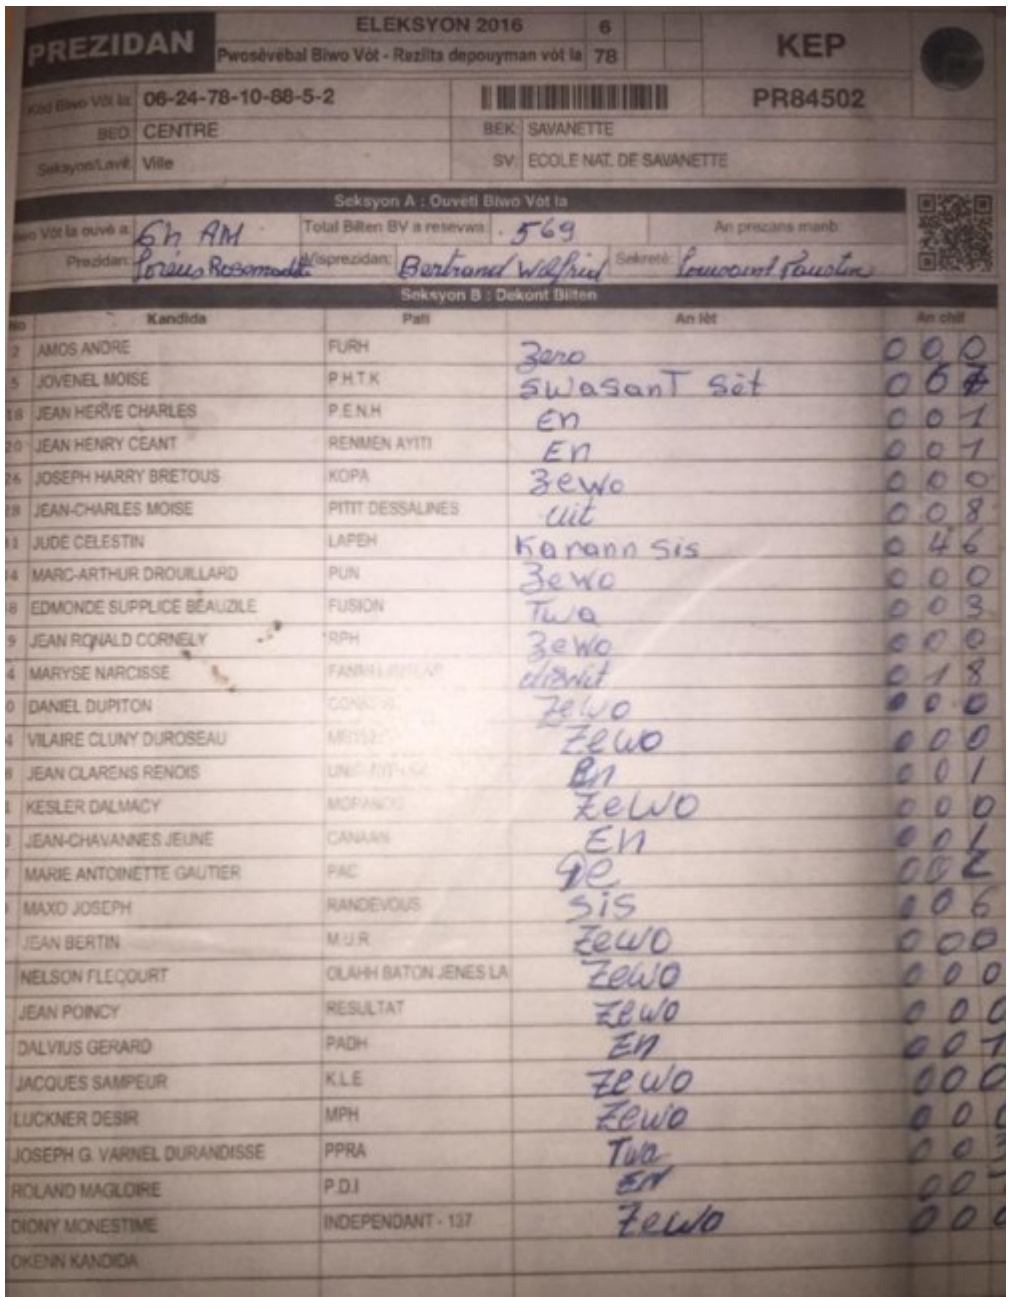 PREZIDAN ELEKSYON 2016 6 KEP
Pwosèvèbal Biwo Vót - Rezilta depouyman vót la 78
Kòd Biwo Vót la: 06-24-78-10-88-5-2 PR84502
BED: CENTRE BEK: SAVANETTE
Seksyon/Lavil: Ville SV: ECOLE NAT. DE SAVANETTE
Seksyon A : Ouvèti Biwo Vót la
Vót la ouvè a: 6h AM Total Bilten BV a resevwa: 569 An prezans manb:
Prezidan: Visprezidan: Bertrand Wilfrid Sekretè:
Seksyon B : Dekont Bilten
No Kandida Pati An lèt An chif
2 AMOS ANDRE FURH Zero 0 0 0
5 JOVENEL MOISE P.H.T.K SwaSanT Sèt 0 6 7
18 JEAN HERVE CHARLES P.E.N.H En 0 0 1
20 JEAN HENRY CEANT RENMEN AYITI En 0 0 1
26 JOSEPH HARRY BRETOUS KOPA Zewo 0 0 0
28 JEAN-CHARLES MOISE PITIT DESSALINES uit 0 0 8
31 JUDE CELESTIN LAPEH Karann Sis 0 4 6
4 MARC-ARTHUR DROUILLARD PUN Zewo 0 0 0
8 EDMONDE SUPPLICE BEAUZILE FUSION Twa 0 0 3
9 JEAN RONALD CORNELY RPH Zewo 0 0 0
4 MARYSE NARCISSE dizwit 0 1 8
0 DANIEL DUPITON Zewo 0 0 0
4 VILAIRE CLUNY DUROSEAU Zewo 0 0 0
JEAN CLARENS RENOIS En 0 0 1
KESLER DALMACY Zewo 0 0 0
JEAN-CHAVANNES JEUNE CANAAN En 0 0 1
MARIE ANTOINETTE GAUTIER PAC De 0 0 2
MAXO JOSEPH RANDEVOUS SiS 0 0 6
JEAN BERTIN M.U.R Zewo 0 0 0
NELSON FLECOURT OLAHH BATON JENES LA Zewo 0 0 0
JEAN POINCY RESULTAT Zewo 0 0 0
DALVIUS GERARD PADH En 0 0 1
JACQUES SAMPEUR K.L.E Zewo 0 0 0
LUCKNER DESIR MPH Zewo 0 0 0
JOSEPH G. VARNEL DURANDISSE PPRA Twa 0 0 3
ROLAND MAGLOIRE P.D.I EN 0 0 1
DIONY MONESTIME INDEPENDANT - 137 Zewo 0 0 0
OKENN KANDIDA